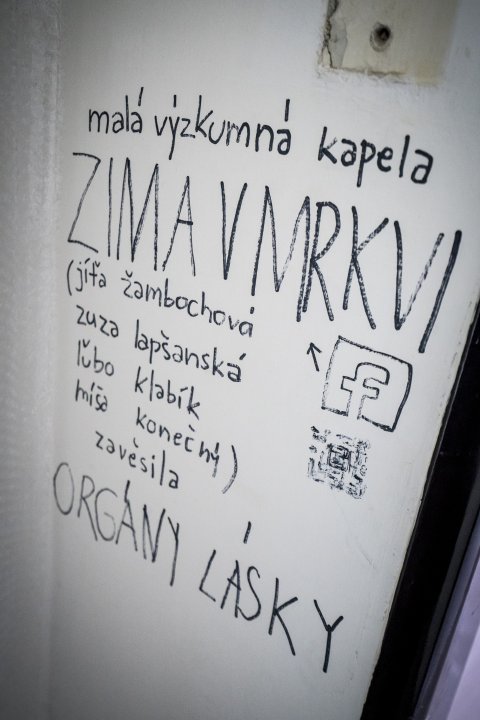 malá výzkumná kapela
ZIMA V MRKVI
(jíťa žambochová
zuza lapšanská
ľubo klabík
míša konečný)
zavěsila
ORGÁNY LÁSKY
f